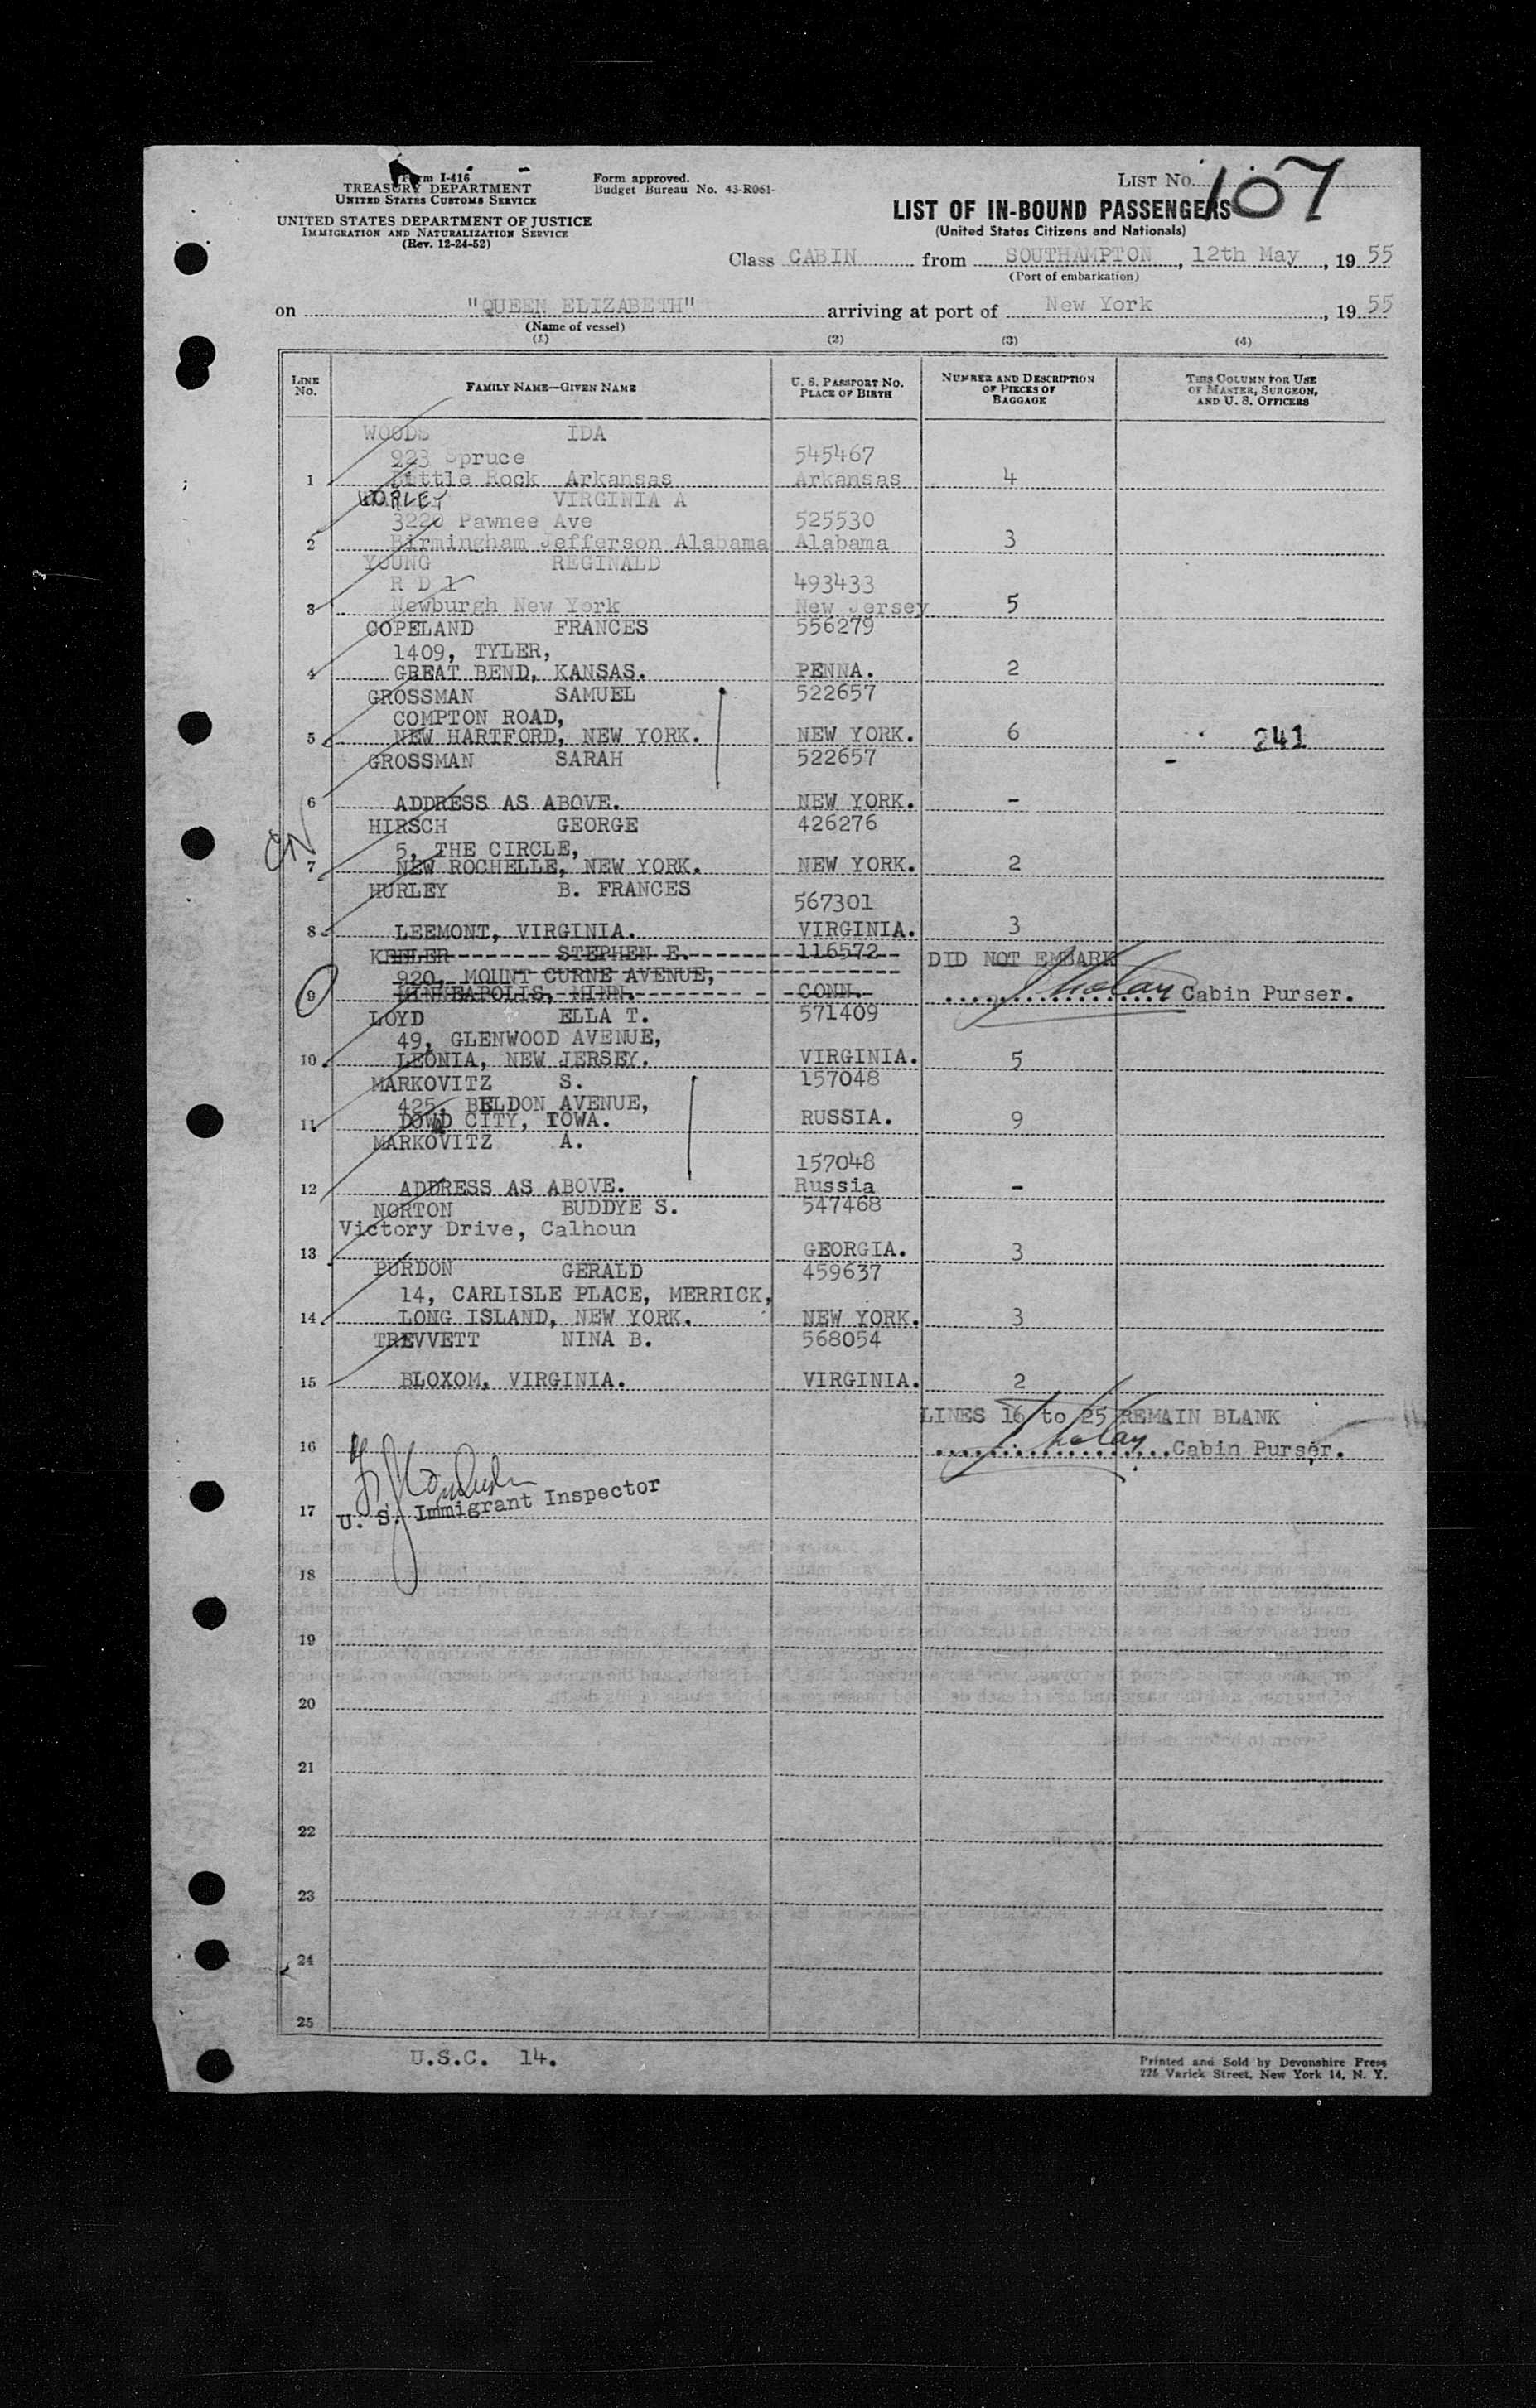 Form I-416
TREASURY DEPARTMENT
UNITED STATES CUSTOMS SERVICE
UNITED STATES DEPARTMENT OF JUSTICE
IMMIGRATION AND NATURALIZATION SERVICE
(Rev. 12-24-52)
Form approved.
Budget Bureau No. 43-R061-
LIST No. 107
LIST OF IN-BOUND PASSENGERS
(United States Citizens and Nationals)
Class CABIN from SOUTHAMPTON, 12th May, 1955
(Port of embarkation)
on "QUEEN ELIZABETH" arriving at port of New York, 1955
(Name of vessel)
(1) (2) (3) (4)
LINE No. FAMILY NAME—GIVEN NAME U. S. PASSPORT NO. PLACE OF BIRTH NUMBER AND DESCRIPTION OF PIECES OF BAGGAGE THIS COLUMN FOR USE OF MASTER, SURGEON, AND U. S. OFFICERS
WOODS IDA
923 Spruce 545467
1 Little Rock Arkansas Arkansas 4
WORLEY VIRGINIA A
3220 Pawnee Ave 525530
2 Birmingham Jefferson Alabama Alabama 3
YOUNG REGINALD
R D 1 493433
3 Newburgh New York New Jersey 5
COPELAND FRANCES 556279
1409, TYLER,
4 GREAT BEND, KANSAS. PENNA. 2
GROSSMAN SAMUEL 522657
COMPTON ROAD,
5 NEW HARTFORD, NEW YORK. NEW YORK. 6 241
GROSSMAN SARAH 522657
6 ADDRESS AS ABOVE. NEW YORK. -
HIRSCH GEORGE 426276
5, THE CIRCLE,
7 NEW ROCHELLE, NEW YORK. NEW YORK. 2
HURLEY B. FRANCES
567301
8 LEEMONT, VIRGINIA. VIRGINIA. 3
KEELER STEPHEN E. 116572 DID NOT EMBARK
920, MOUNT CURNE AVENUE,
9 MINNEAPOLIS, MINN. CONN. Cabin Purser.
LOYD ELLA T. 571409
49, GLENWOOD AVENUE,
10 LEONIA, NEW JERSEY. VIRGINIA. 5
MARKOVITZ S. 157048
425, BELDON AVENUE,
11 DOWD CITY, IOWA. RUSSIA. 9
MARKOVITZ A.
157048
12 ADDRESS AS ABOVE. Russia -
NORTON BUDDYE S. 547468
Victory Drive, Calhoun
13 GEORGIA. 3
PURDON GERALD 459637
14, CARLISLE PLACE, MERRICK,
14 LONG ISLAND, NEW YORK. NEW YORK. 3
TREVVETT NINA B. 568054
15 BLOXOM, VIRGINIA. VIRGINIA. 2
LINES 16 to 25 REMAIN BLANK
16 Cabin Purser.
17 U. S. Immigrant Inspector
18
19
20
21
22
23
24
25
U.S.C. 14.
Printed and Sold by Devonshire Press
225 Varick Street, New York 14, N. Y.